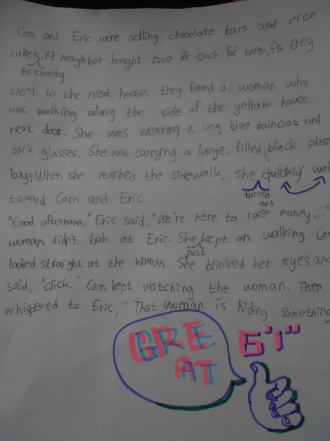 Cam and Eric were selling chocolate bars and rice
cakes for charity. A neighbor bought two of each for them. As they
went to the next house, they found a woman who
was walking along the side of the yellow house
next door. She was wearing a long blue raincoat and
dark glasses. She was carrying a large, filled, black plas
bag. When she reached the sidewalk, she turned and quickly wal
toward Cam and Eric.
"Good afternoon," Eric said. "We're here to raise money..."
woman didn't look at Eric. She just kept on walking. Cam
looked straight at the woman. She blinked her eyes and
said, "click." Cam kept watching the woman. Then
whispered to Eric, "That woman is hiding something
GREAT